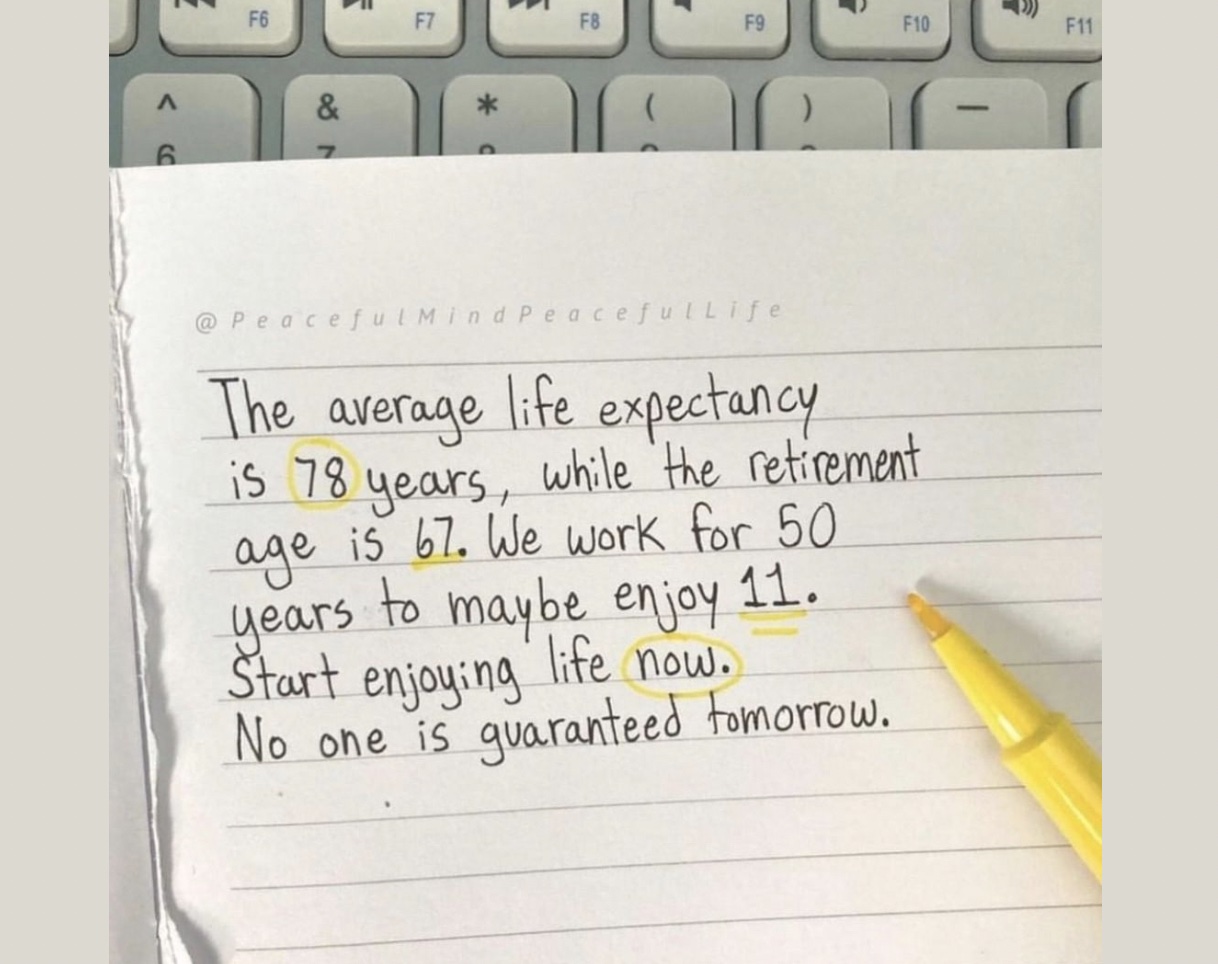 F6 F7 F8 F9 F10 F11
^ & * ( ) —
6 7
@PeacefulMindPeacefulLife
The average life expectancy
is 78 years, while the retirement
age is 67. We work for 50
years to maybe enjoy 11.
Start enjoying life now.
No one is guaranteed tomorrow.